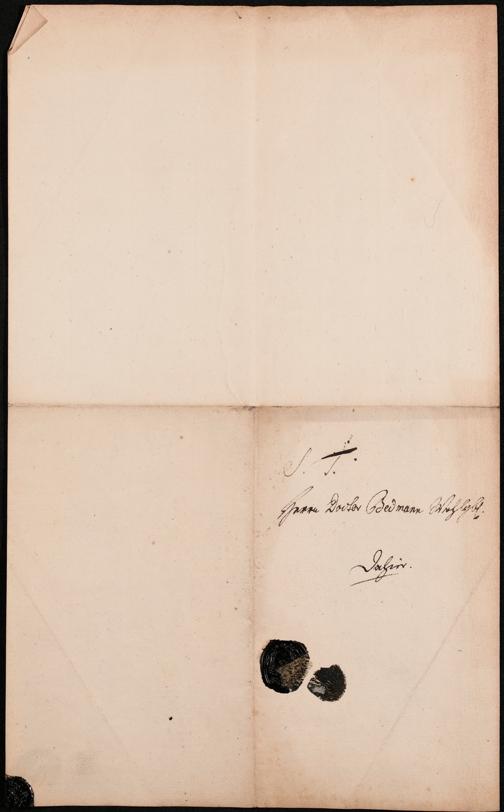 S. T.
Herrn Doctor Bedmann Wohlgb.
Dahier.